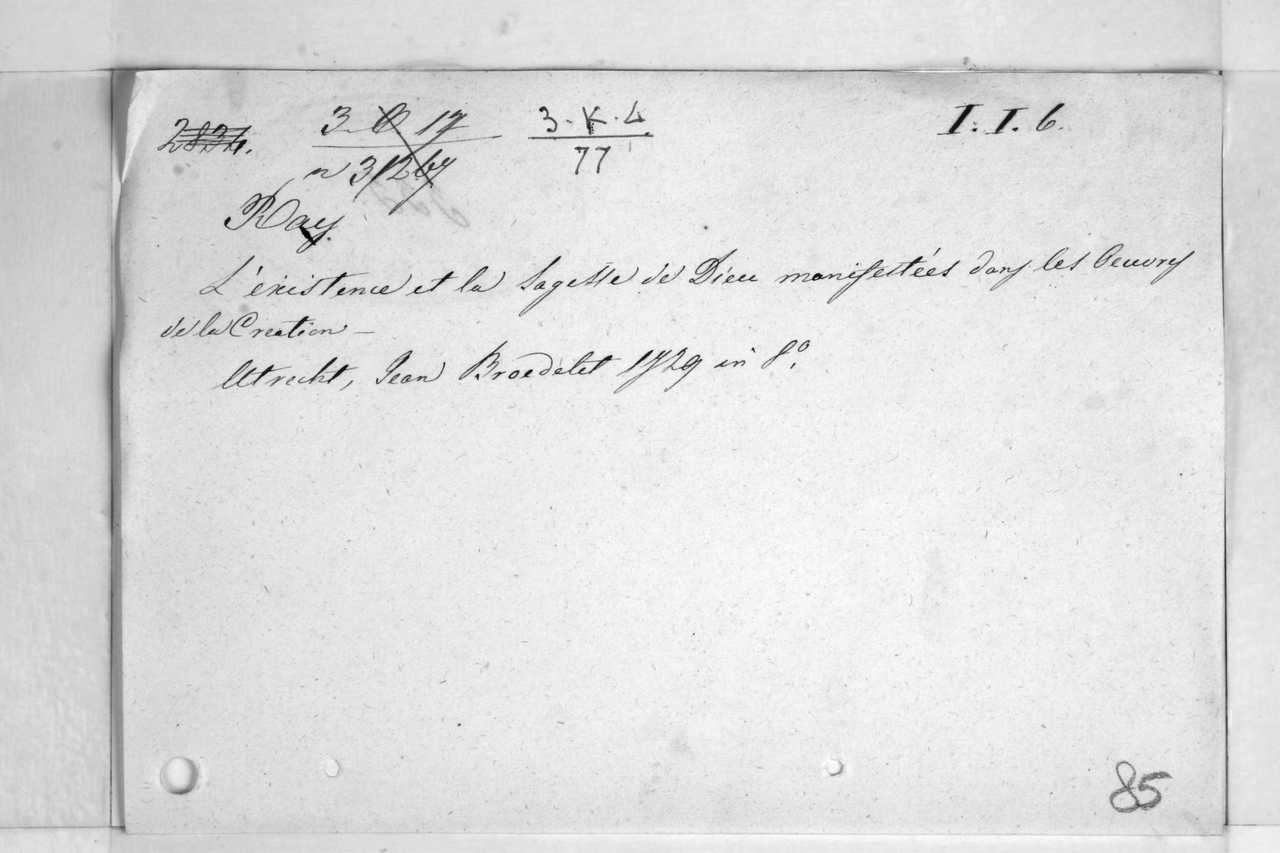 2834. 3. 17 3.K.4 I. I. 6.
n 31267 77
Ray.
L'éxistence et la Sagesse de Dieu manifestées dans les Oeuvres
de la Creation –
Utrecht, Jean Broedelet 1729 in 8º.
85